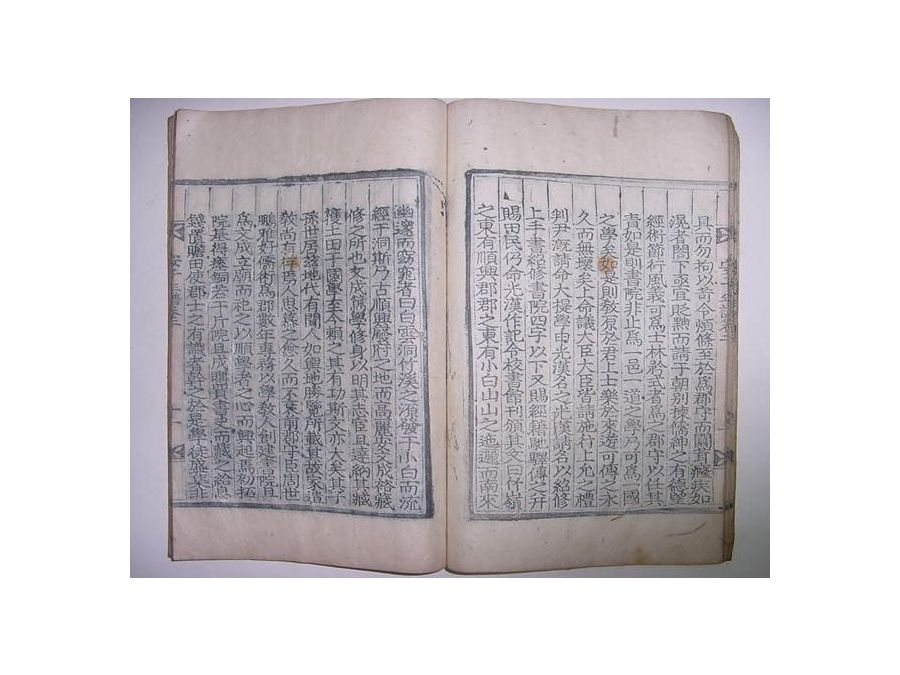 具而勿拘以苛令煩條至於爲郡守而闒茸癃疾如
滉者閤下亟宜貶黜而請于朝別揀儒紳之有德望
經術節行風義可爲士林矜式者爲之郡守以任其
責如是則書院非止爲一邑一道之學乃可爲一國
之學矣如是則教原於君上士樂於來遊可傳之永
久而無壞矣上命議大臣大臣皆請施行上允之禮
判尹漑請命大提學申光漢名之光漢請名以紹修
上手書紹修書院四字以下又賜經籍馳驛傳之幷
賜田民仍命光漢作記令校書館刊頒其文曰竹嶺
之東有順興郡郡之東有小白山山之迤邐而南來
幽邃而窈窕者曰白雲洞竹溪之源發于小白而流
經于洞斯乃古順興廢府之地而高麗安文成裕藏
修之所也文成篤學修身以明其志宦且達納其臧
獲土田于國學至今賴之其有功斯文亦大矣其子
孫世居玆地代有聞人如輿地勝覽所載其故家遺
敎尚有存焉人思爲之愈久而不衰前郡守臣周世
鵬雅好儒術爲郡數年專務以學敎人創建書院且
爲文成立廟而祀之以順學者之心而興起焉初拓
院基得瘞銅若干斤院且成購買書史而藏之給息
錢置贍田使郡士之有識者幹之於是學徒盛集非